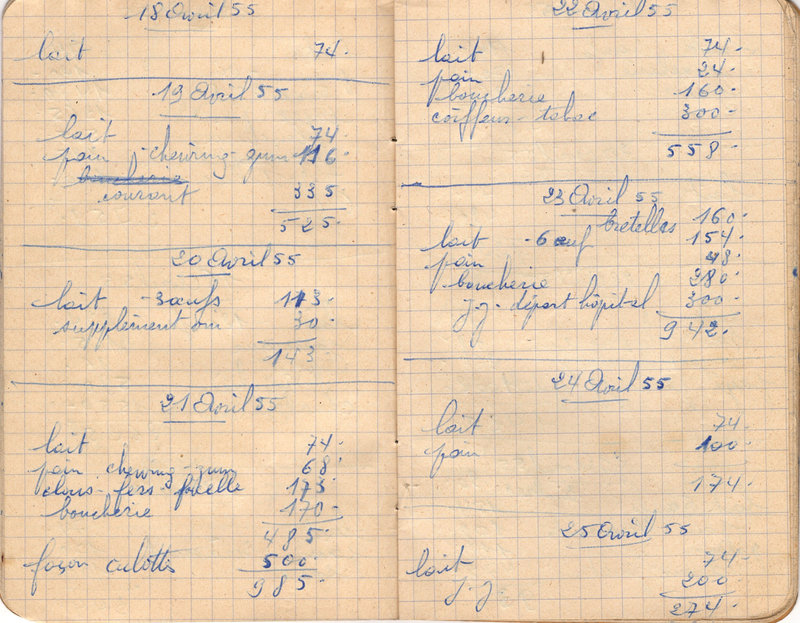 18 Avril 55
lait 74.
19 Avril 55
lait 74.
pain - chewing-gum 116.
boucherie
courant 335
525.
20 Avril 55
lait - 3 œufs 113.
supplément vin 30.
143
21 Avril 55
lait 74.
pain chewing-gum 68.
clous - fers - ficelle 173.
boucherie 170.
485.
façon culottes 500.
985.
22 Avril 55
lait 74.
pain 24.
boucherie 160.
coiffeur - tabac 300.
558.
23 Avril 55
bretelles 160.
lait - 6 œuf 154.
pain 48.
boucherie 280.
J-J - départ hôpital 300.
942.
24 Avril 55
lait 74.
pain 100.
174.
25 Avril 55
lait 74.
J-J. 200
274.